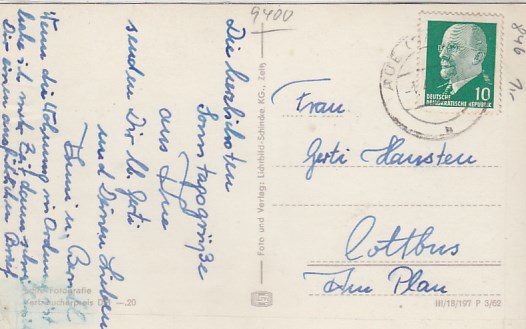 9400
846
1,-
AUE
10
DEUTSCHE
DEMOKRATISCHE REPUBLIK
Die herzlichsten
Sonntagsgrüße
aus Aue
senden Dir lb. Gerti
und Deinen Lieben
Wenn die Wohnung in Ordnung ist
habe ich mehr Zeit dann
Dir einen ausführlichen Brief
Frau
Gerti Hansten
Cottbus
Am Plan
Foto und Verlag: Lichtbild-Schincke KG., Zeitz
Fotografie
Verbraucherpreis DM —.20
III/18/197 P 3/62